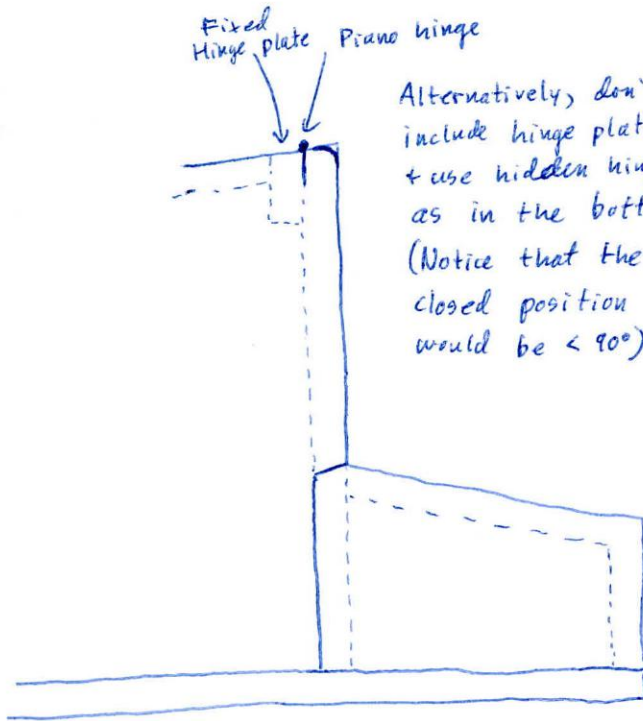 Fixed
Hinge plate
Piano hinge
Alternatively, don'
include hinge plat
+ use hidden hin
as in the bott
(Notice that the
closed position
would be < 90°)